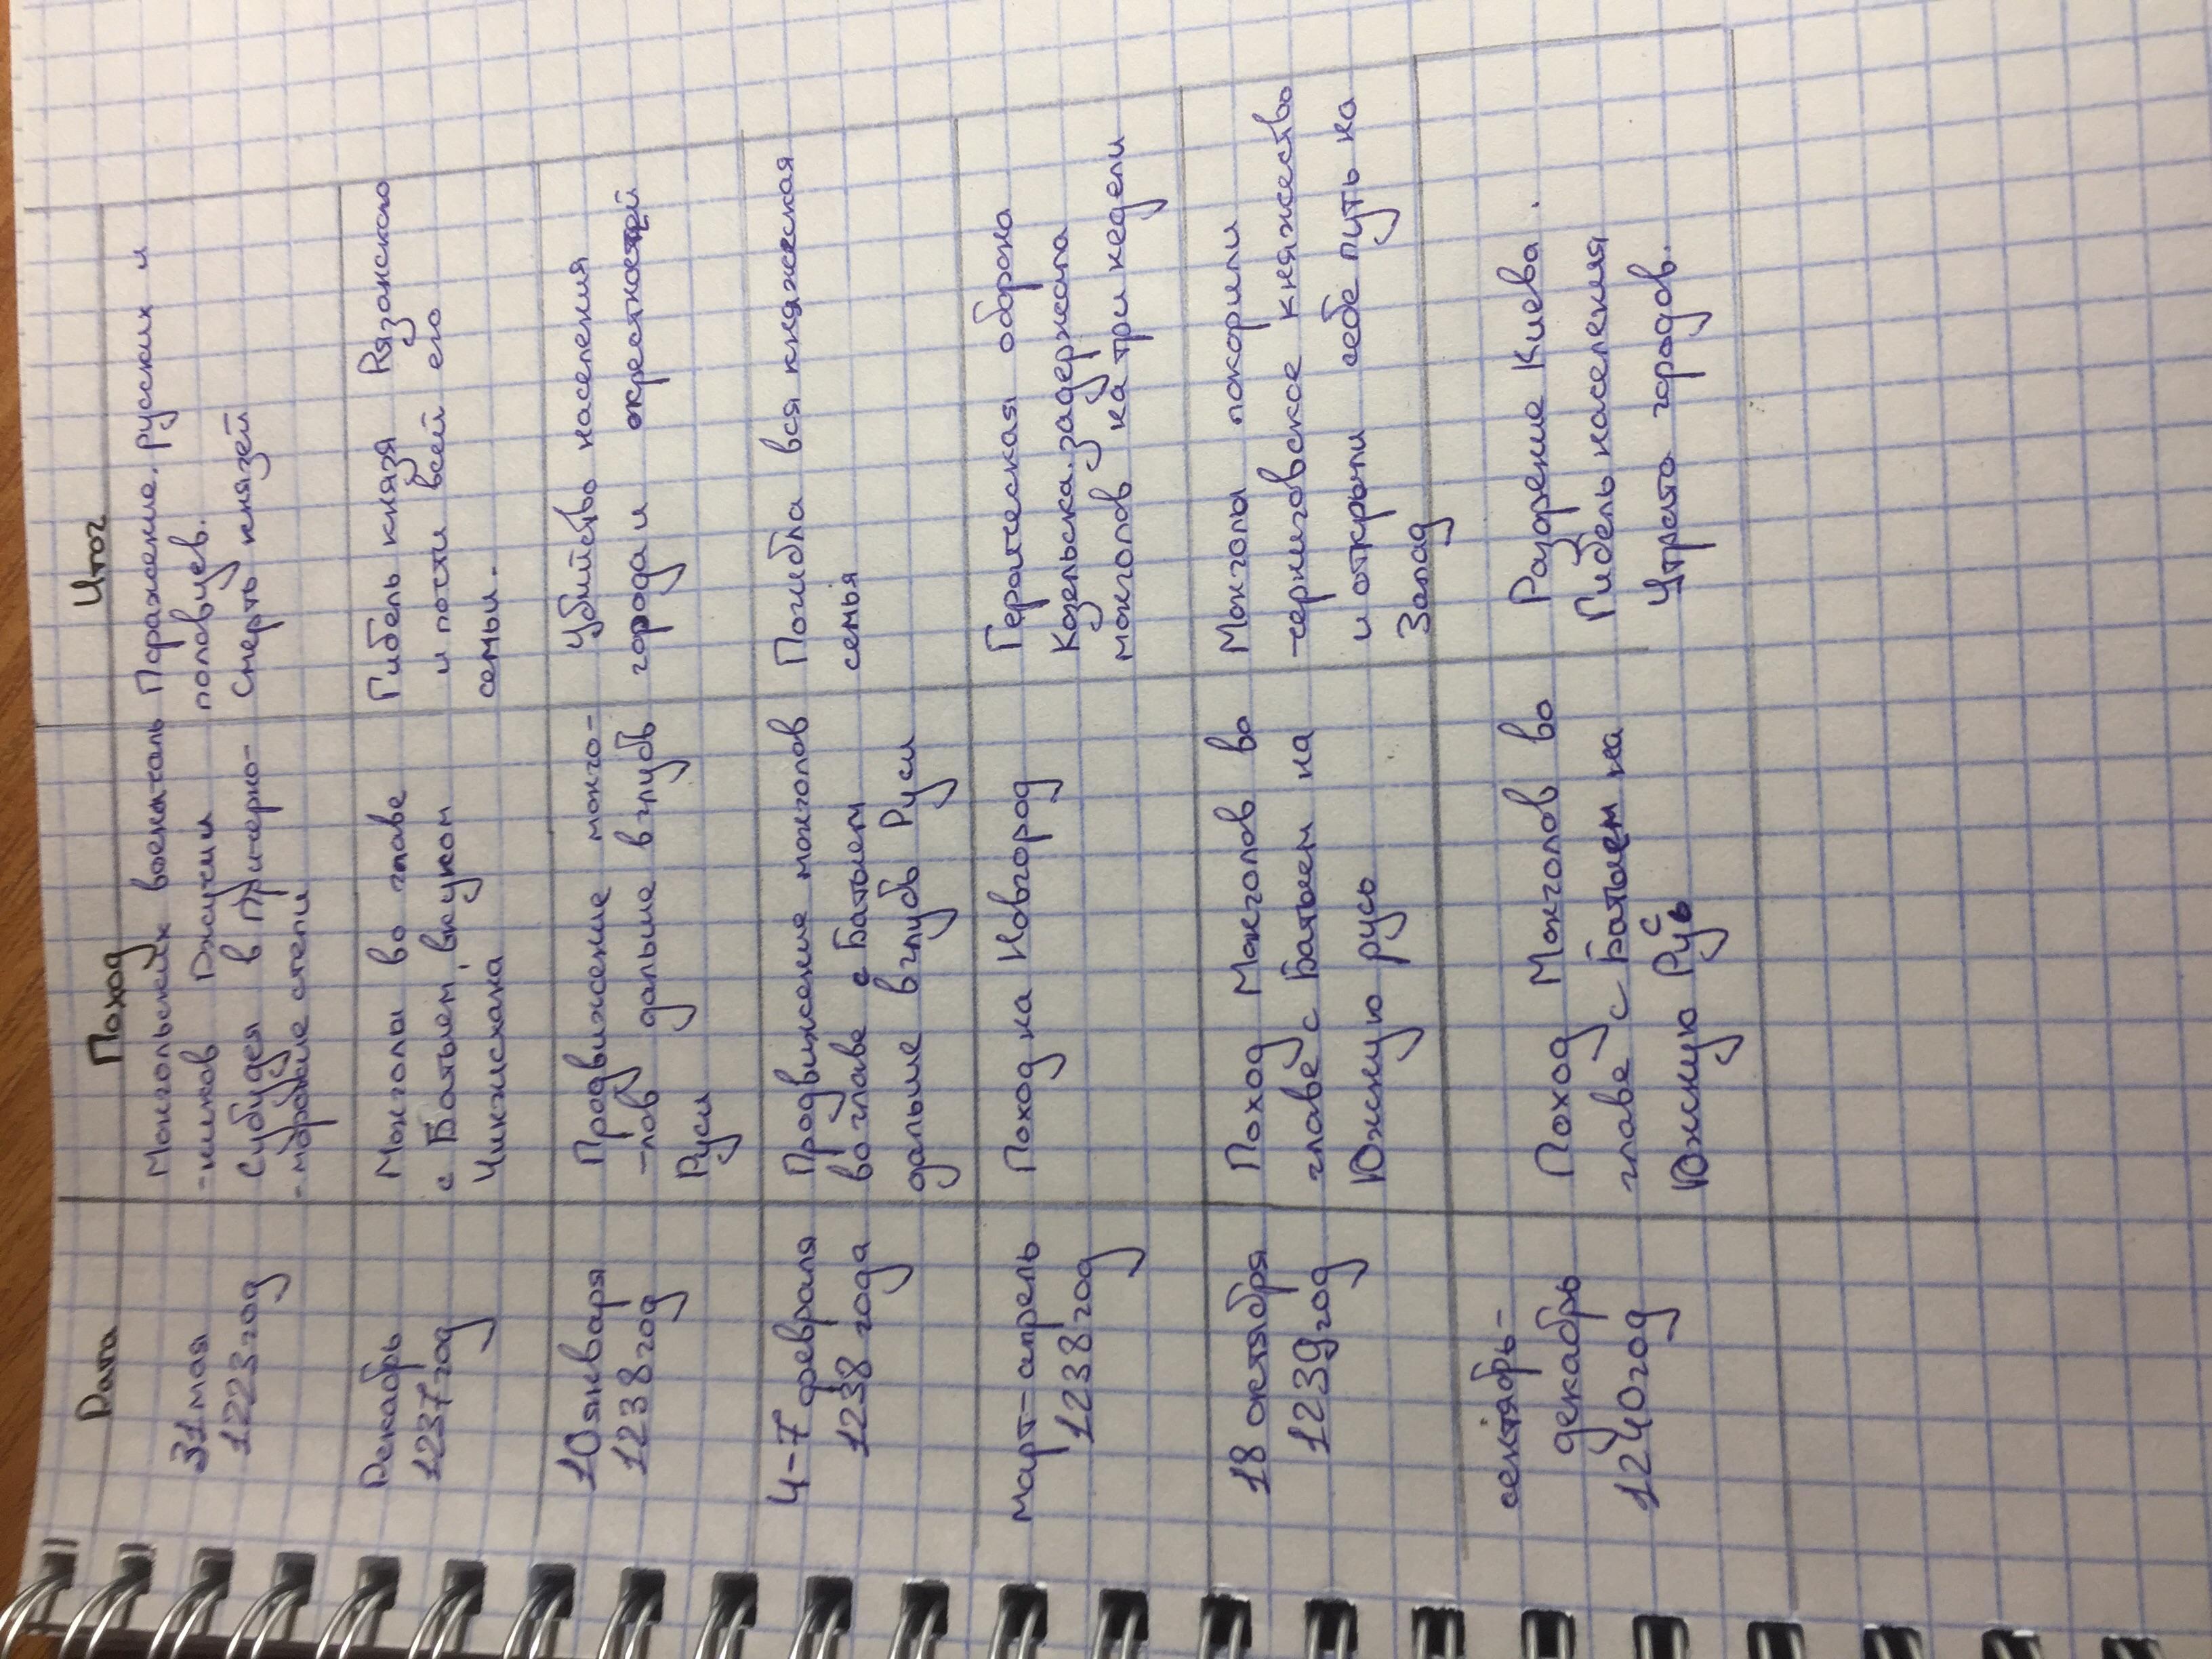 Дата Поход Итог
31 мая
1223 год
Монгольских военачаль
-ников Джучи и
Субудея в Причерно-
-морские степи
Поражение. русских и
половцев.
Смерть князей
Декабрь
1237 год
Монголы во главе
с Батыем, внуком
Чингисхана
Гибель князя Рязанского
и почти всей его
семьи.
10 января
1238 год
Продвижение монго-
-лов дальше вглубь
Руси
Убийство населения
города и окрестностей
4-7 февраля
1238 года
Продвижение монголов
во главе с Батыем
дальше вглубь Руси
Погибла вся княжеская
семья
март-апрель
1238 год
Поход на Новгород
Героическая оборона
Козельска. задержала
монголов на три недели
18 октября
1239 год
Поход Монголов во
главе с Батыем на
Южную русь
Монголы покорили
черниговское княжество
и открыли себе путь на
Запад
сентябрь-
декабрь
1240 год
Поход Монголов во
главе с Батыем на
Южную Русь
Разорение Киева.
Гибель населения
Утрата городов.